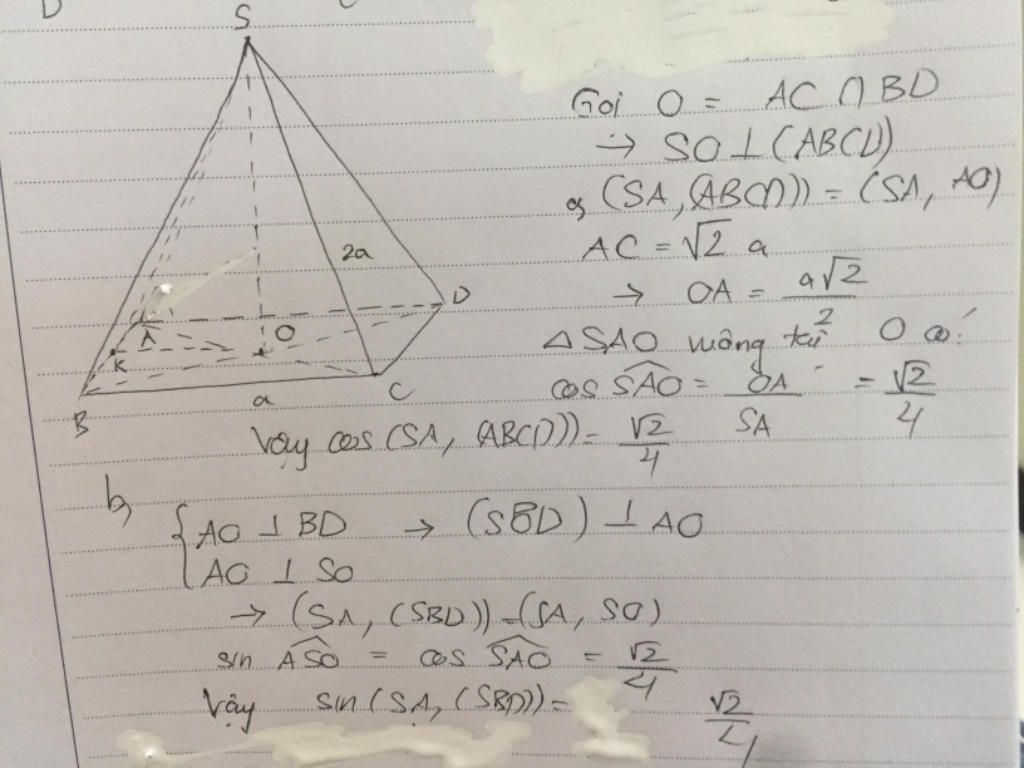 D
S
2a
A
O
D
K
B
a
C
Gọi O = AC ∩ BD
→ SO ⊥ (ABCD)
a, (SA, (ABCD)) = (SA, AO)
AC = √2 a
→ OA = a√2 / 2
△SAO vuông tại O có:
cos SAO = OA / SA = √2 / 4
Vậy cos (SA, (ABCD)) = √2 / 4
b,
{ AO ⊥ BD → (SBD) ⊥ AO
AO ⊥ SO
→ (SA, (SBD)) = (SA, SO)
sin ASO = cos SAO = √2 / 4
Vậy sin (SA, (SBD)) = √2 / 4